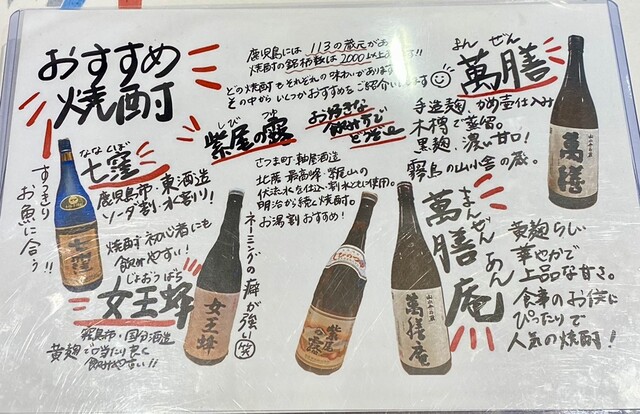 おすすめ
焼酎
鹿児島には 113の蔵元があり
焼酎の銘柄数は2000以上
どの焼酎もそれぞれの味わいがあります
その中からいくつかおすすめをご紹介します
お好きな
飲み方で
どうぞ
まん ぜん
萬膳
手造麹、かめ壺仕込み
木樽で蒸留。
黒麹、濃い甘口!
霧島の山小舎の蔵。
山小舎の蔵
萬膳
ななくぼ
七窪
鹿児島市・東酒造
ソーダ割・水割り!
焼酎初心者にも
飲みやすい!
すっきり
お魚に合う!!
七窪
しび つゆ
紫尾の露
さつま町・軸屋酒造
北薩最高峰・紫尾山の
伏流水を仕込、割水とも使用。
明治から続く焼酎。
お湯割おすすめ!
紫尾の露
じょおうばち
女王蜂
霧島市・国分酒造
黄麹で口当たり良く
飲みやすい!!
ネーミングの癖が強い(笑)
女王蜂
まんぜんあん
萬膳庵
黄麹らしい
華やかで
上品な甘さ。
食事のお供に
ぴったりで
人気の焼酎!
山小舎の蔵
萬膳庵